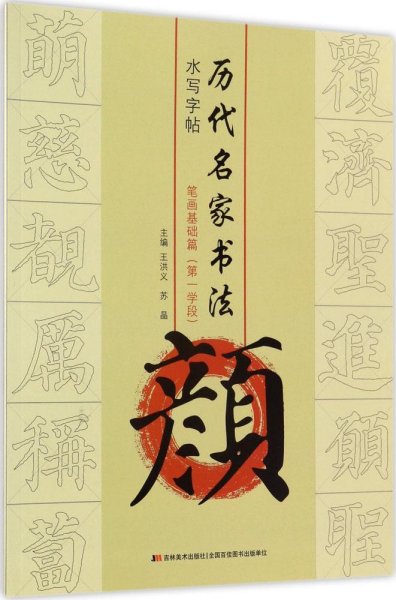 历代名家书法
水写字帖
笔画基础篇（第一学段）
主编 王洪义 苏晶
颜
覆濟聖進顧聖
萌慈覩厲稱蔔
JM 吉林美术出版社|全国百佳图书出版单位